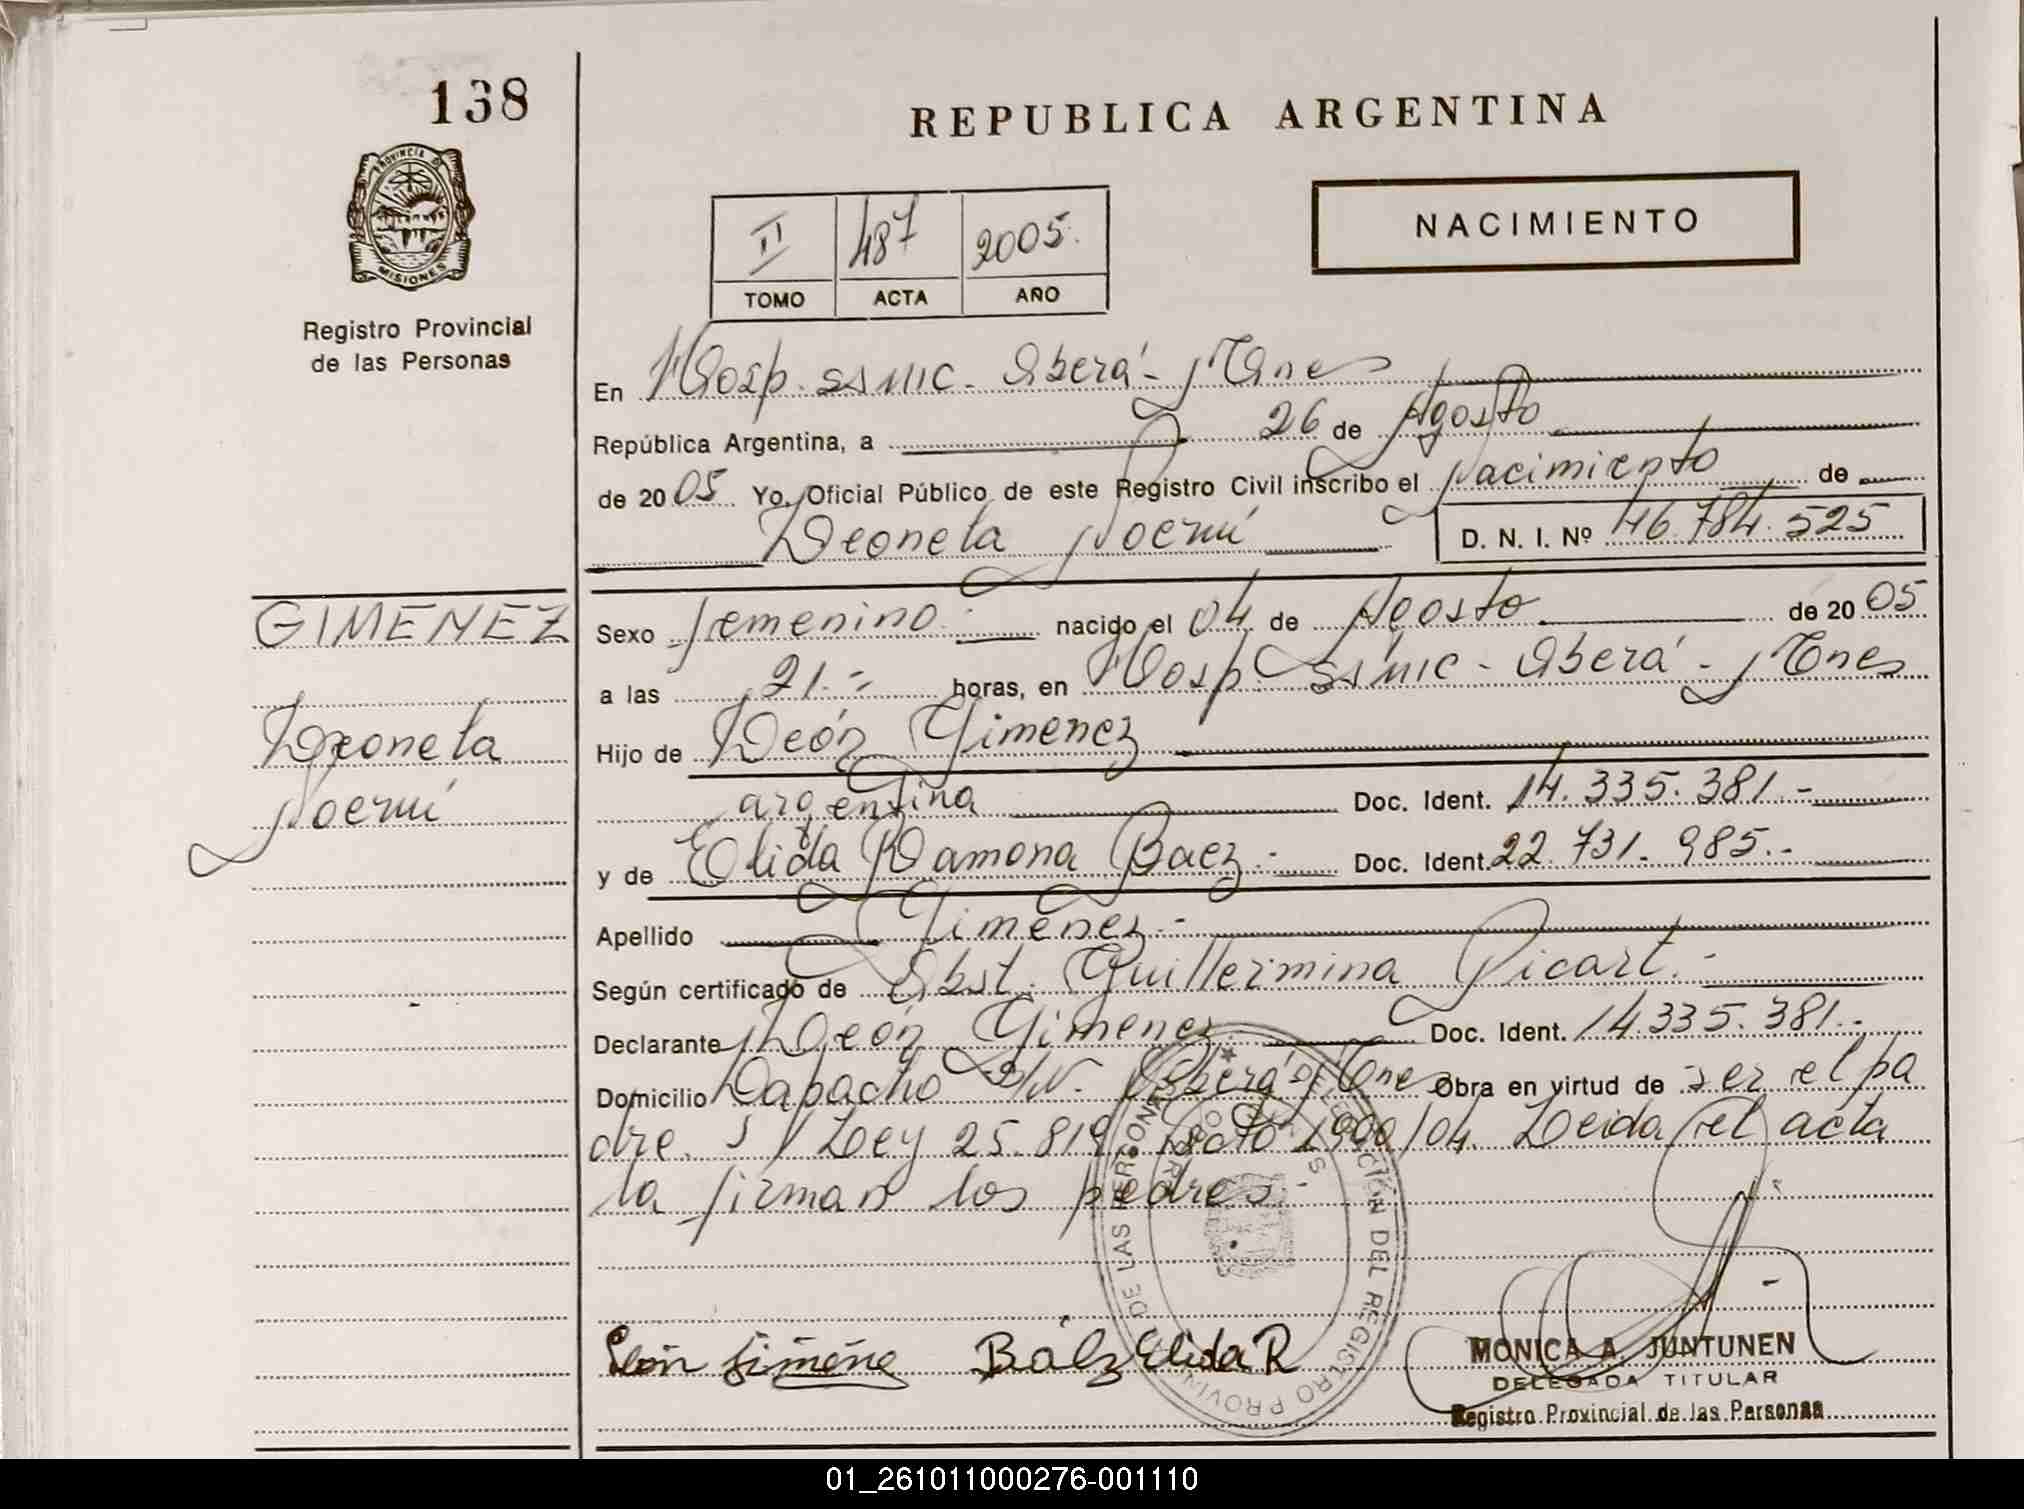 138
REPUBLICA ARGENTINA
PROVINCIA DE
MISIONES
Registro Provincial
de las Personas
NACIMIENTO
II 487 2005.
TOMO ACTA AÑO
En Hosp. SSMIC. Oberá - Mnes
República Argentina, a 26 de Agosto
de 2005 Yo, Oficial Público de este Registro Civil inscribo el Nacimiento de
Leonela Noemí D. N. I. Nº 46.784.525
GIMENEZ
Leonela
Noemí
Sexo femenino. nacido el 04 de Agosto de 2005
a las 21.- horas, en Hosp SSMIC - Oberá - Mnes
Hijo de León Gimenez
argentina Doc. Ident. 14.335.381.-
y de Elida Ramona Baez.- Doc. Ident. 22.731.985.-
Apellido Gimenez.-
Según certificado de Obst. Guillermina Picart.-
Declarante León Gimenez Doc. Ident. 14.335.381.-
Domicilio Lapacho S/N. Oberá Mnes Obra en virtud de ser el pa
dre. S/ Ley 25.819 1900/04. Leida el acta
la firman los padres.-
DELEGACIÓN DEL REGISTRO PROVINCIAL DE LAS PERSONAS
León Jiméne Báez Elida R
MONICA A. JUNTUNEN
DELEGADA TITULAR
Registro Provincial de las Personas
01_261011000276-001110